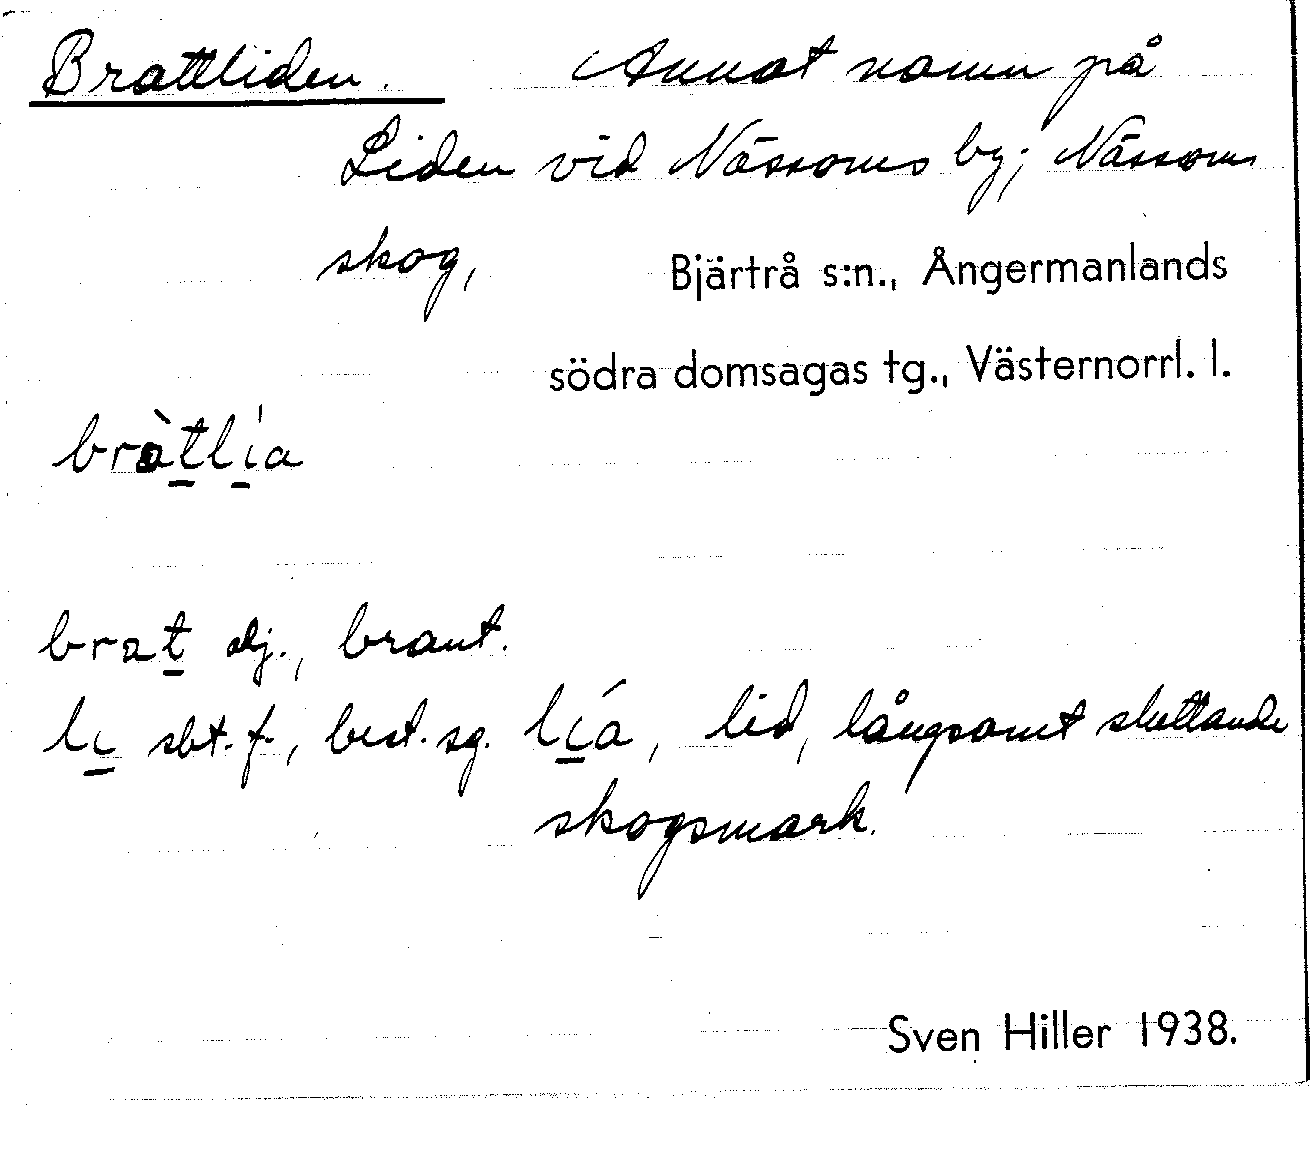 Brattliden. Annat namn på
Liden vid Nässoms by; Nässoms
skog, Bjärtrå s:n., Ångermanlands
södra domsagas tg., Västernorrl. l.
bràt̲lí̲a
brat̲ adj., brant.
li̲ sbt. f., best. sg. lí̲a, lid, långsamt sluttande
skogsmark.
Sven Hiller 1938.